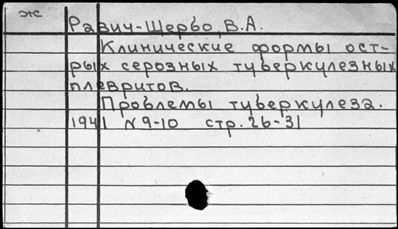 ж
Равич-Щербо, В.А.
Клинические формы ост-
рых серозных туберкулезных
плевритов.
Проблемы туберкулеза.
1941 №9-10 стр. 26-31